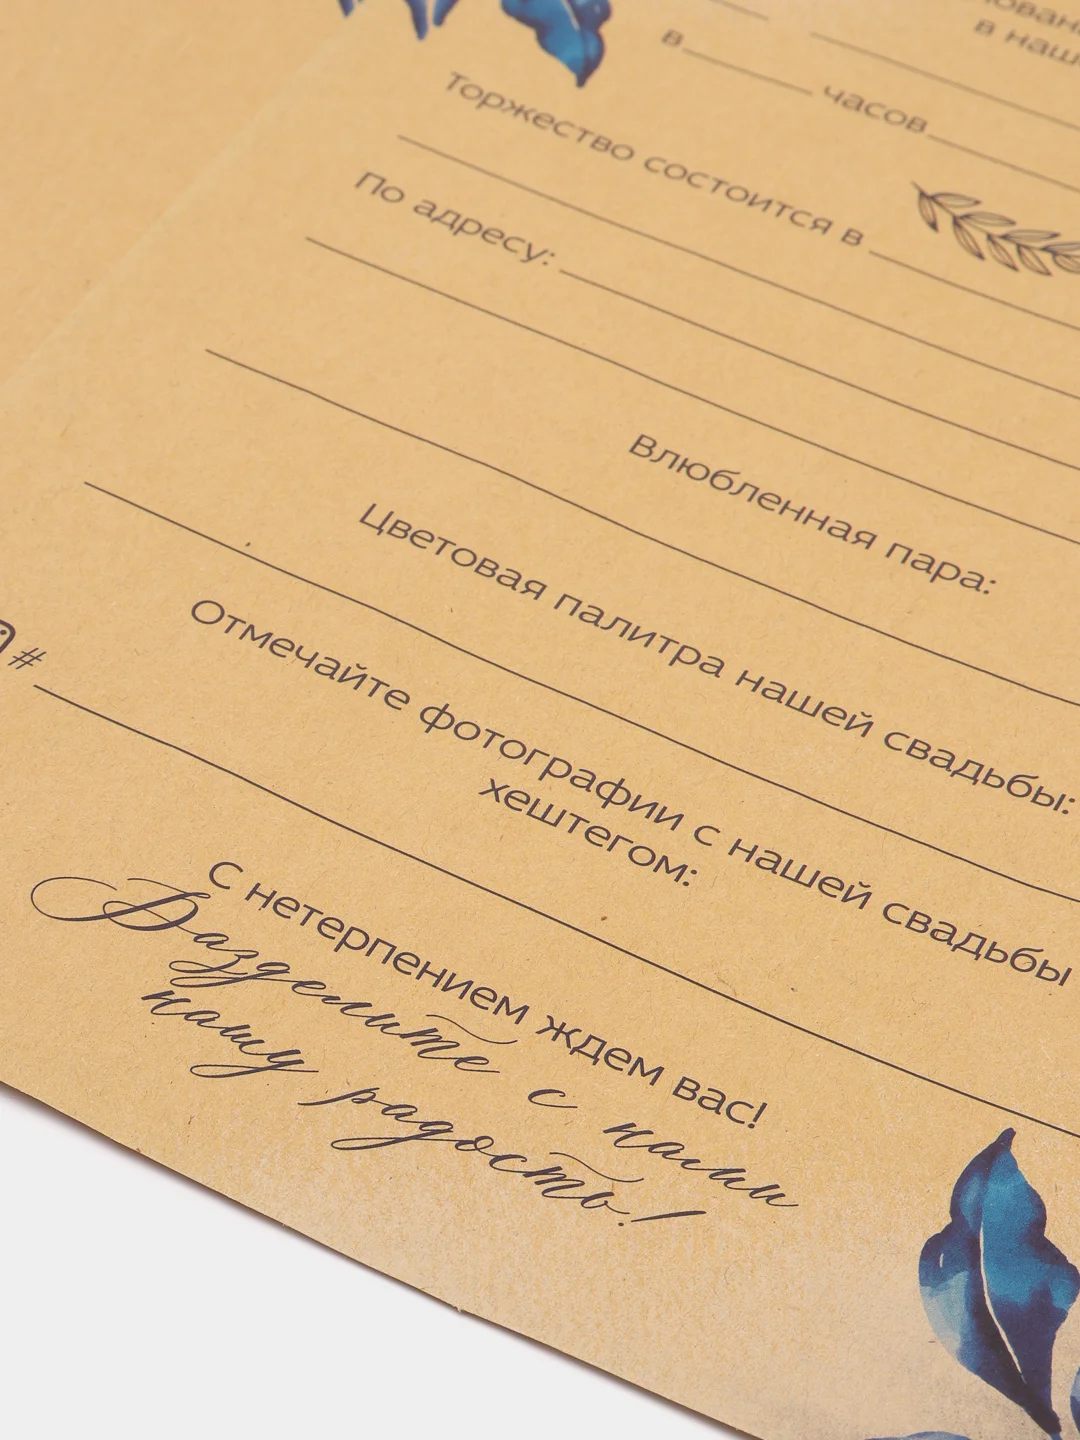 в наш
в часов
Торжество состоится в
По адресу:
Влюбленная пара:
Цветовая палитра нашей свадьбы:
Отмечайте фотографии с нашей свадьбы
хештегом:
#
С нетерпением ждем вас!
Разделите с нами
нашу радость!